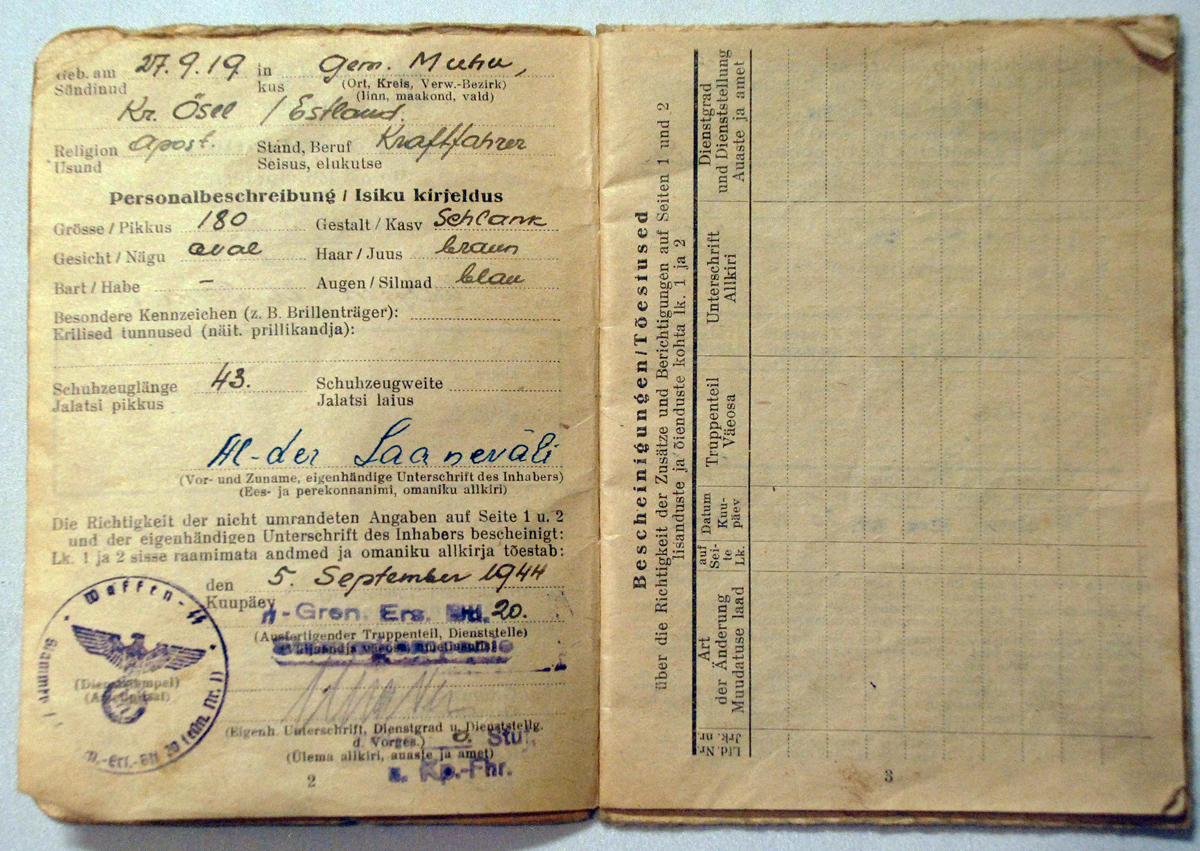 Geb. am 27.9.19 in gem. Muhu,
Sündinud kus (Ort, Kreis, Verw.-Bezirk)
(linn, maakond, vald)
Kr. Ösel / Estland.
Religion apost. Stand, Beruf Kraftfahrer
Usund Seisus, elukutse
Personalbeschreibung / Isiku kirjeldus
Grösse / Pikkus 180 Gestalt / Kasv Schlank
Gesicht / Nägu oval Haar / Juus braun
Bart / Habe – Augen / Silmad blau
Besondere Kennzeichen (z. B. Brillenträger):
Erilised tunnused (näit. prillikandja):
Schuhzeuglänge 43. Schuhzeugweite
Jalatsi pikkus Jalatsi laius
Al-der Saaneväli
(Vor- und Zuname, eigenhändige Unterschrift des Inhabers)
(Ees- ja perekonnanimi, omaniku allkiri)
Die Richtigkeit der nicht umrandeten Angaben auf Seite 1 u. 2
und der eigenhändigen Unterschrift des Inhabers bescheinigt:
Lk. 1 ja 2 sisse raamimata andmed ja omaniku allkirja tõestab:
den 5. September 1944
Kuupäev
ᛋᛋ-Gren. Ers. Btl. 20.
(Ausfertigender Truppenteil, Dienststelle)
Waffen-ᛋᛋ
(Dienststempel)
(Eigenh. Unterschrift, Dienstgrad u. Dienststellg.
d. Vorges.)
(Ülema allkiri, auaste ja amet)
Stuf.
Kp.-Fhr.
2
Bescheinigungen/Tõestused
über die Richtigkeit der Zusätze und Berichtigungen auf Seiten 1 und 2
lisanduste ja õienduste kohta lk. 1 ja 2
Lfd. Nr.
Jrk. nr.
Art
der Änderung
Muudatuse laad
auf
Sei-
te
Lk.
Datum
Kuu-
päev
Truppenteil
Väeosa
Unterschrift
Allkiri
Dienstgrad
und Dienststellung
Auaste ja amet
3